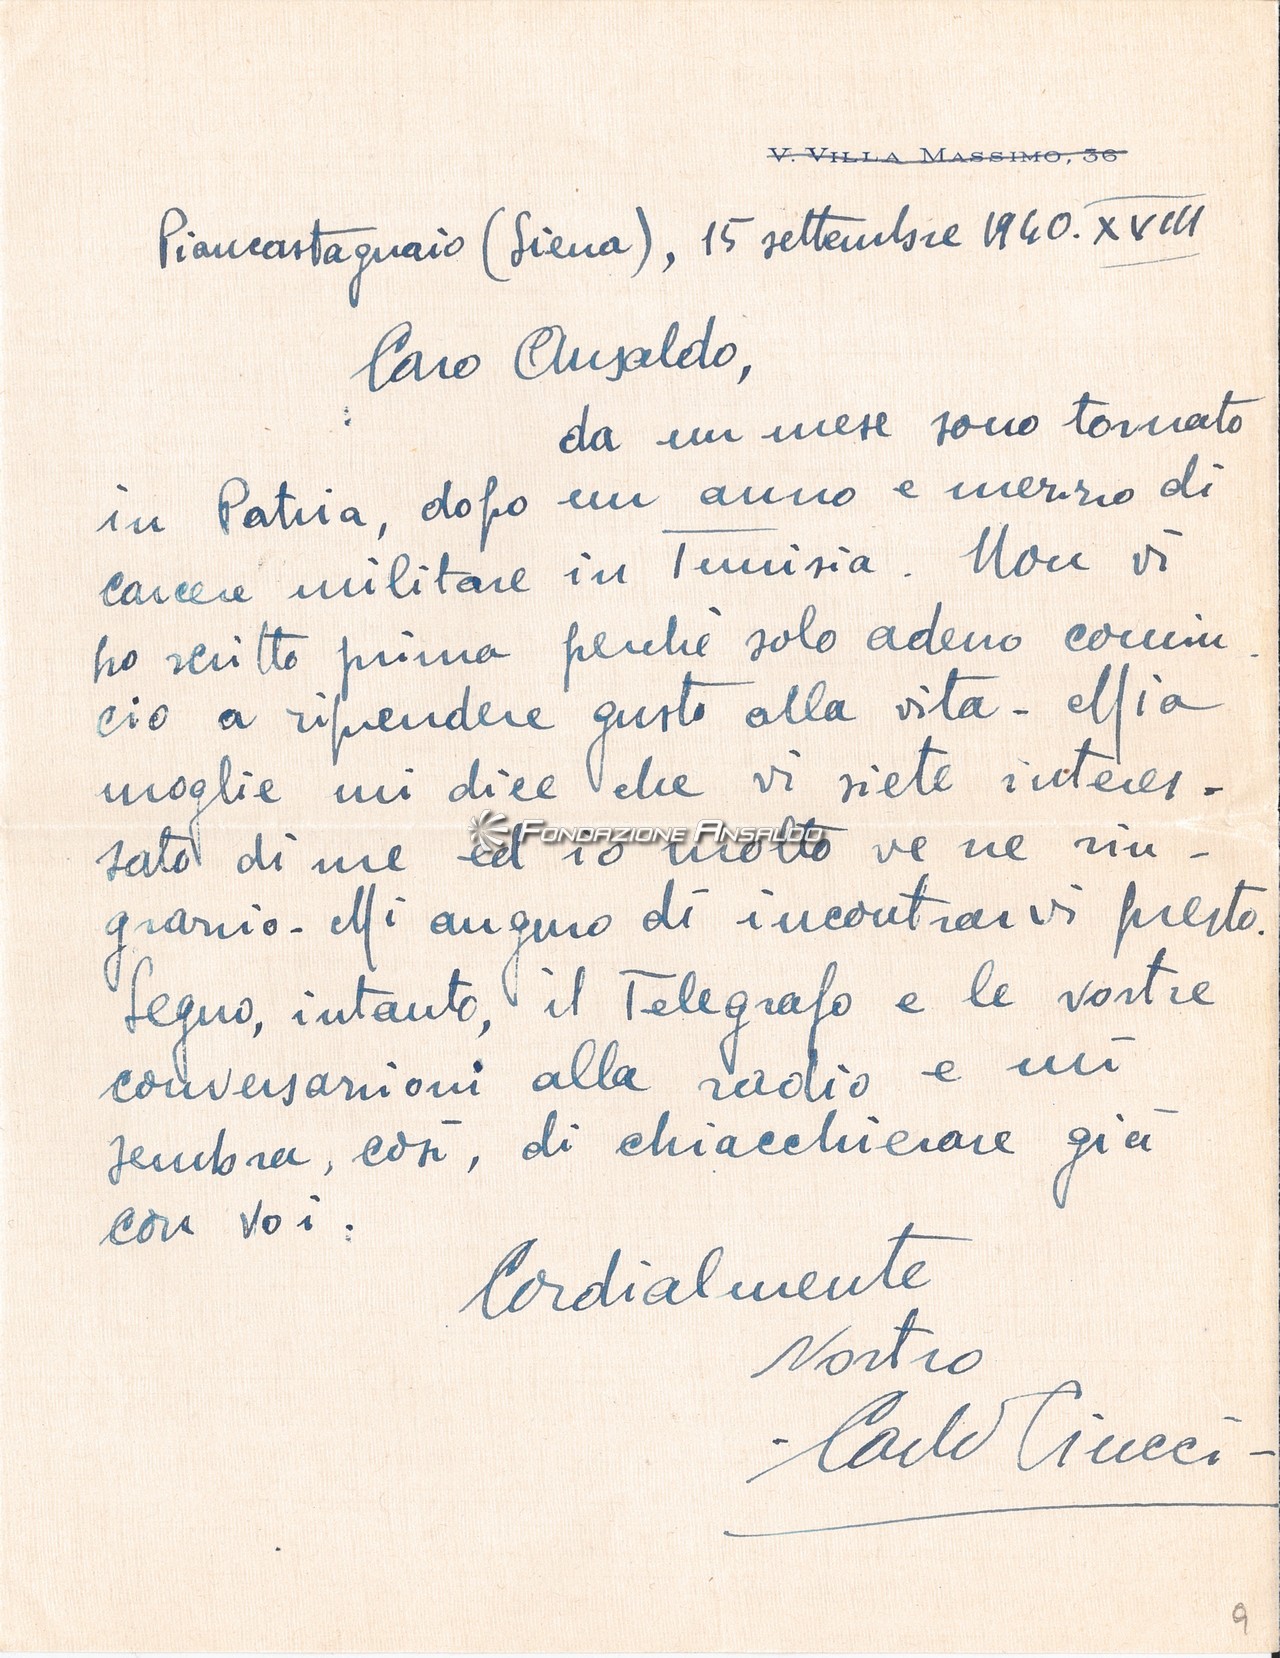 V. VILLA MASSIMO, 36
Piancastagnaio (Siena), 15 settembre 1940. XVIII
Caro Ansaldo,
da un mese sono tornato
in Patria, dopo un anno e mezzo di
carcere militare in Tunisia. Non vi
ho scritto prima perchè solo adesso comin-
cio a riprendere gusto alla vita - Mia
moglie mi dice che vi siete interes-
sato di me ed io molto ve ne rin-
grazio - Mi auguro di incontrarvi presto.
Seguo, intanto, il Telegrafo e le vostre
conversazioni alla radio e mi
sembra, così, di chiacchierare già
con voi.
Cordialmente
Vostro
- Carlo Ciucci -
9
FONDAZIONE ANSALDO